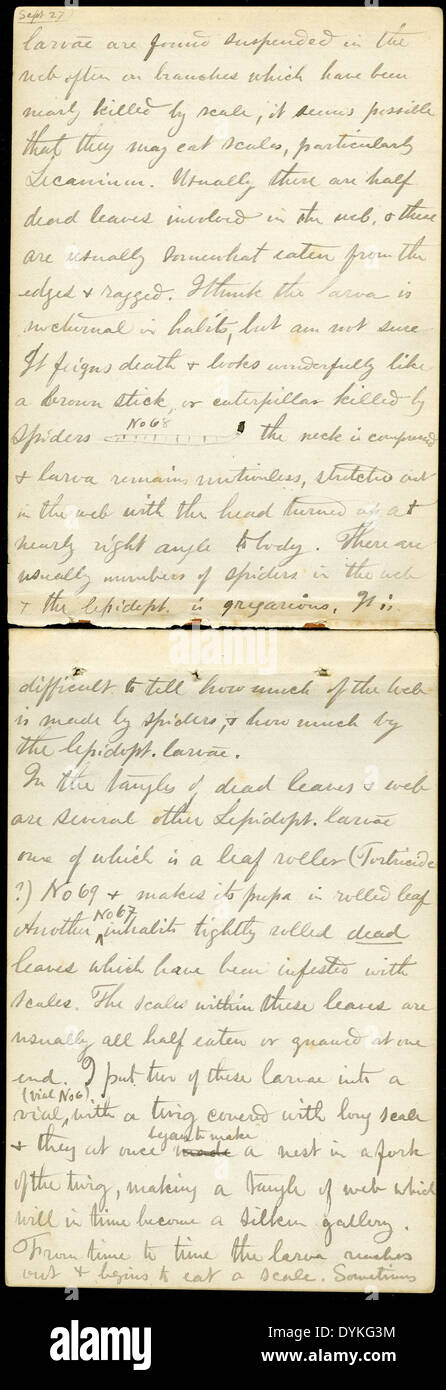 Sept 27
larvae are found suspended in the
web often on branches which have been
nearly killed by scale, it seems possible
that they may eat scales, particularly
Lecanium. Usually there are half
dead leaves involved in the web, & these
are usually somewhat eaten from the
edges & ragged. I think the larva is
nocturnal in habits, but am not sure
It feigns death & looks wonderfully like
a brown stick, or caterpillar killed by
spiders No 68 the neck is compressed
& larva remains motionless, stretched out
in the web with the head turned up at
nearly right angle to body. There are
usually numbers of spiders in the web
& the lepidopt. is gregarious. It is
difficult to tell how much of the web
is made by spiders, & how much by
the lepidopt. larvae.
In the tangles of dead leaves & web
are several other Lepidopt. larvae
one of which is a leaf roller (Tortricidae
?) No 69 & makes its pupa in rolled leaf
Another No 67 inhabits tightly rolled dead
leaves which have been infested with
scales. The scales within these leaves are
usually all half eaten or gnawed at one
end. I put two of these larvae into a
(vial No 6)
vial, with a twig covered with long scale
& they at once made began to make a nest in a fork
of the twig, making a tangle of web which
will in time become a silken gallery.
From time to time the larva reaches
out & begins to eat a scale. Sometimes
a alamy stock photo
alamy
Image ID: DYKG3M
www.alamy.com